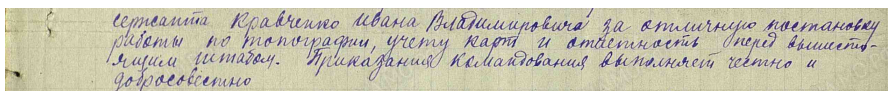 сержанта Кравченко Ивана Владимировича за отличную постановку
работы по топографии, учету карт и отчетность перед вышесто-
ящим штабом. Приказания командования выполняет честно и
добросовестно